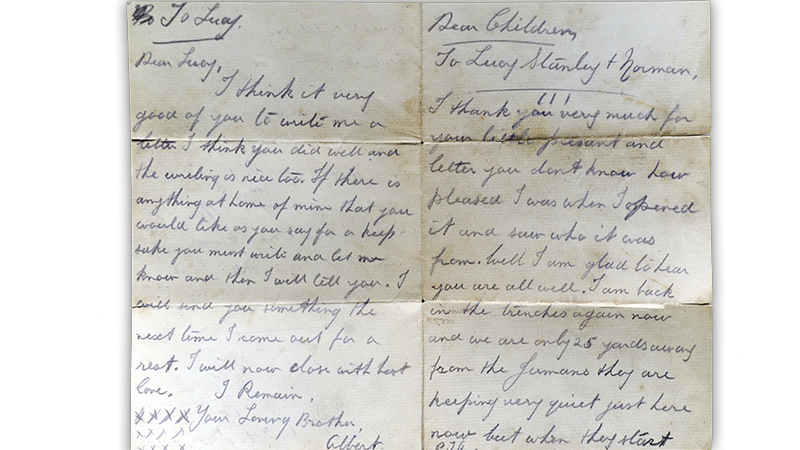 To Lucy.
Dear Lucy,
I think it very
good of you to write me a
letter I think you did well and
the writing is nice too. If there is
anything at home of mine that you
would like as you say for a keep-
sake you must write and let me
know and then I will tell you. I
will send you something the
next time I come out for a
rest. I will now close with best
love. I Remain,
XXXX Your Loving Brother,
XXXX Albert.
XXXX
Dear Children,
To Lucy Stanley + Norman,
I thank you very much for
your little present and
letter you dont know how
pleased I was when I opened
it and saw who it was
from. Well I am glad to hear
you are all well. I am back
in the trenches again now
and we are only 25 yards away
from the Germans they are
keeping very quiet just here
now but when they start